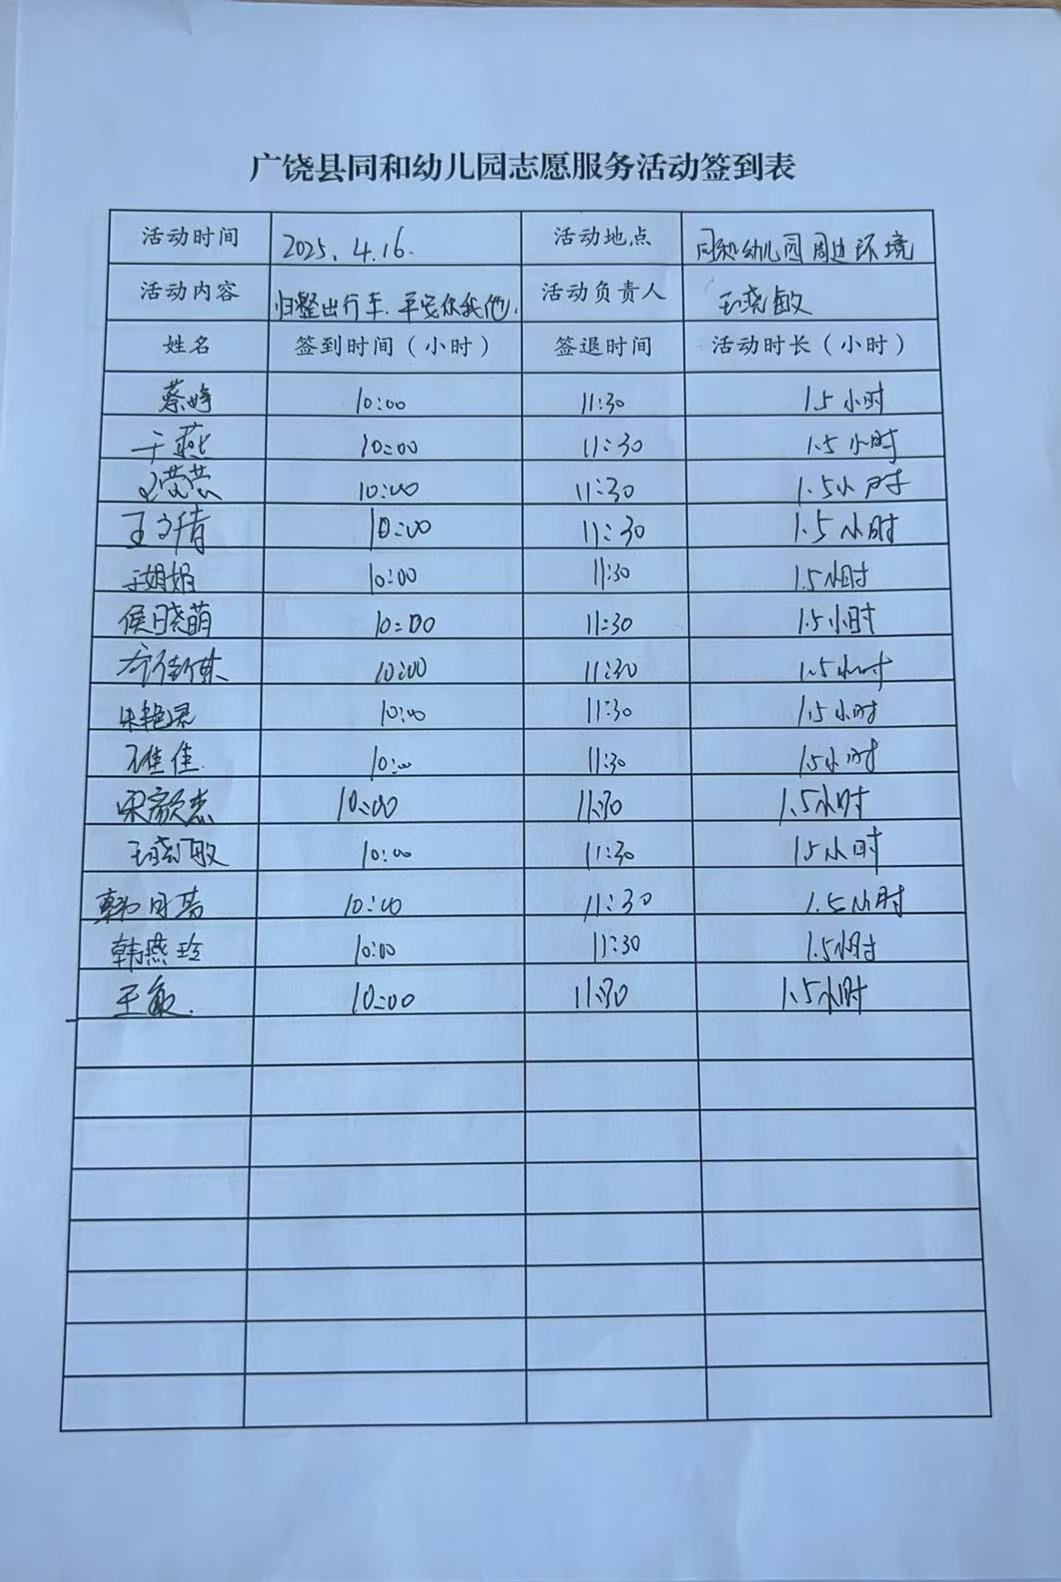 广饶县同和幼儿园志愿服务活动签到表
活动时间 2025.4.16. 活动地点 同和幼儿园周边环境
活动内容 归整出行车.平安你我他. 活动负责人 王晓敏
姓名 签到时间（小时） 签退时间 活动时长（小时）
蔡婷 10:00 11:30 1.5小时
于燕 10:00 11:30 1.5小时
荣荣 10:00 11:30 1.5小时
王文倩 10:00 11:30 1.5小时
于娟娟 10:00 11:30 1.5小时
侯晓萌 10:00 11:30 1.5小时
10:00 11:30 1.5小时
宋艳 10:00 11:30 1.5小时
佳佳. 10:00 11:30 1.5小时
宋颜杰 10:00 11:30 1.5小时
王晓敏 10:00 11:30 1.5小时
韩月 10:00 11:30 1.5小时
韩燕玲 10:00 11:30 1.5小时
王敏. 10:00 11:30 1.5小时